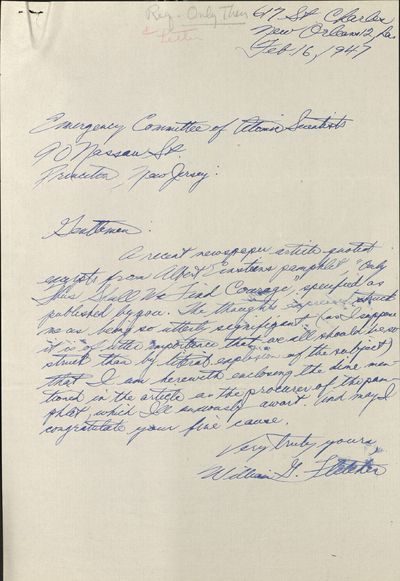 Reg. Only Then
& Letter
617 St. Charles
New Orleans 12, La.
Feb. 16, 1947
Emergency Committee of Atomic Scientists
90 Nassau St.
Princeton, New Jersey.
Gentlemen:
A recent newspaper article quoted
excerpts from Albert Einsteins pamphlet, "Only
Then Shall We Find Courage", specified as
published by you. The thoughts expressed struck
me as being so utterly significant (as I suppose
it is of utter importance that we all should be so
struck than by literal explosion of the subject)
that I am herewith enclosing the dime men-
tioned in the article as the procurer of the pam-
phlet which I'll anxiously await. And may I
congratulate your fine cause.
Very truly yours
William G. Fletcher